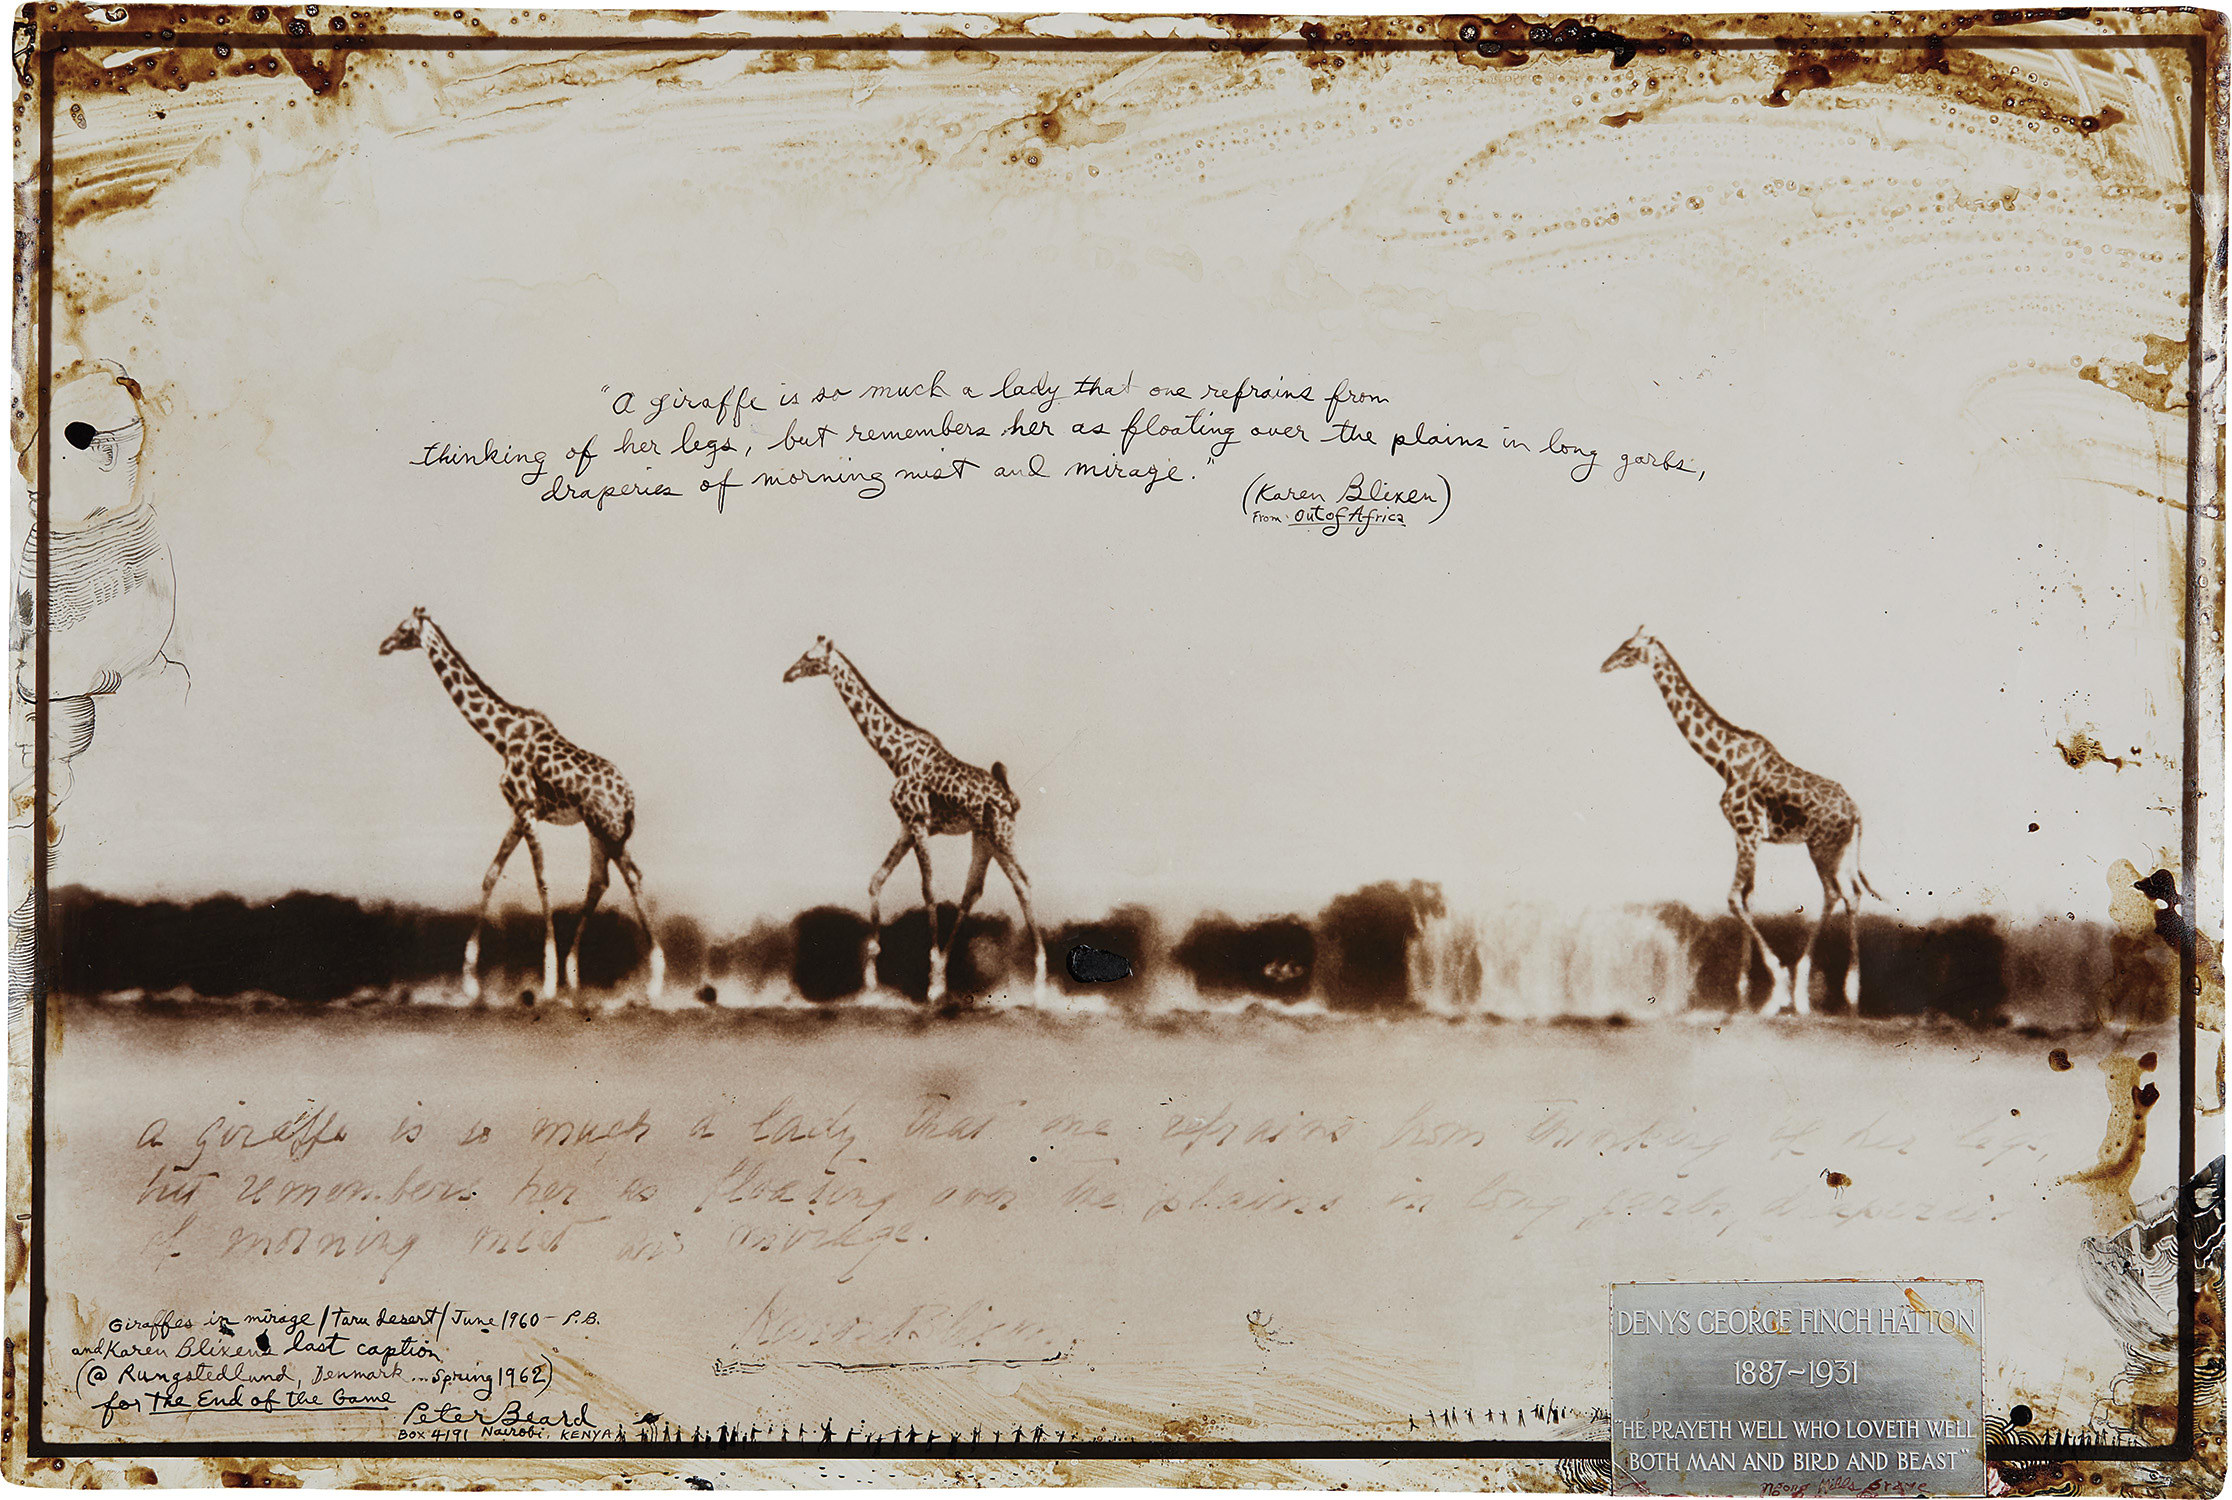 "A giraffe is so much a lady that one refrains from
thinking of her legs, but remembers her as floating over the plains in long garbs,
draperies of morning mist and mirage."
(Karen Blixen)
From: Out of Africa
a giraffe is so much a lady that one refrains from thinking of her legs,
but remembers her as floating over the plains in long garbs, draperies
of morning mist and mirage.
Karen Blixen
Giraffes in mirage / Taru desert / June 1960 – P.B.
and Karen Blixens last caption
(@ Rungstedlund, Denmark ... Spring 1962)
for The End of the Game
Peter Beard
Box 4191 Nairobi, KENYA
DENYS GEORGE FINCH HATTON
1887~1931
"HE PRAYETH WELL WHO LOVETH WELL
BOTH MAN AND BIRD AND BEAST"
Ngong Hills Grave